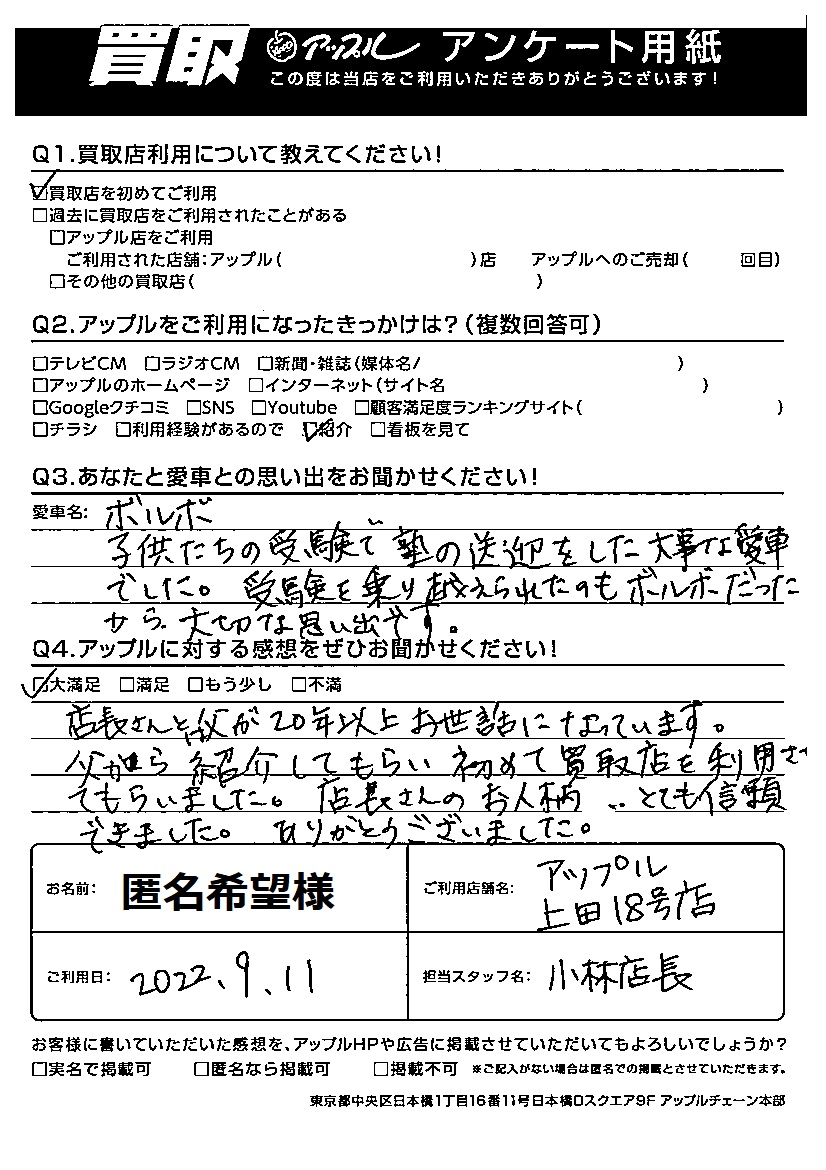 買取 アップル アンケート用紙
この度は当店をご利用いただきありがとうございます!
Q1.買取店利用について教えてください!
☑買取店を初めてご利用
□過去に買取店をご利用されたことがある
□アップル店をご利用
ご利用された店舗:アップル( )店 アップルへのご売却( 回目)
□その他の買取店( )
Q2.アップルをご利用になったきっかけは?(複数回答可)
□テレビCM □ラジオCM □新聞・雑誌(媒体名/ )
□アップルのホームページ □インターネット(サイト名 )
□Googleクチコミ □SNS □Youtube □顧客満足度ランキングサイト( )
□チラシ □利用経験があるので ☑紹介 □看板を見て
Q3.あなたと愛車との思い出をお聞かせください!
愛車名: ボルボ
子供たちの受験で塾の送迎をした大事な愛車
でした。受験を乗り越えられたのもボルボだった
から、大切な思い出です。
Q4.アップルに対する感想をぜひお聞かせください!
☑大満足 □満足 □もう少し □不満
店長さんと父が20年以上お世話になっています。
父から紹介してもらい初めて買取店を利用させ
てもらいました。店長さんのお人柄 とても信頼
できました。ありがとうございました。
お名前: 匿名希望様
ご利用店舗名: アップル
上田18号店
ご利用日: 2022、9、11
担当スタッフ名: 小林店長
お客様に書いていただいた感想を、アップルHPや広告に掲載させていただいてもよろしいでしょうか?
□実名で掲載可 □匿名なら掲載可 □掲載不可 ※ご記入がない場合は匿名での掲載とさせていただきます。
東京都中央区日本橋1丁目16番11号日本橋Dスクエア9F アップルチェーン本部